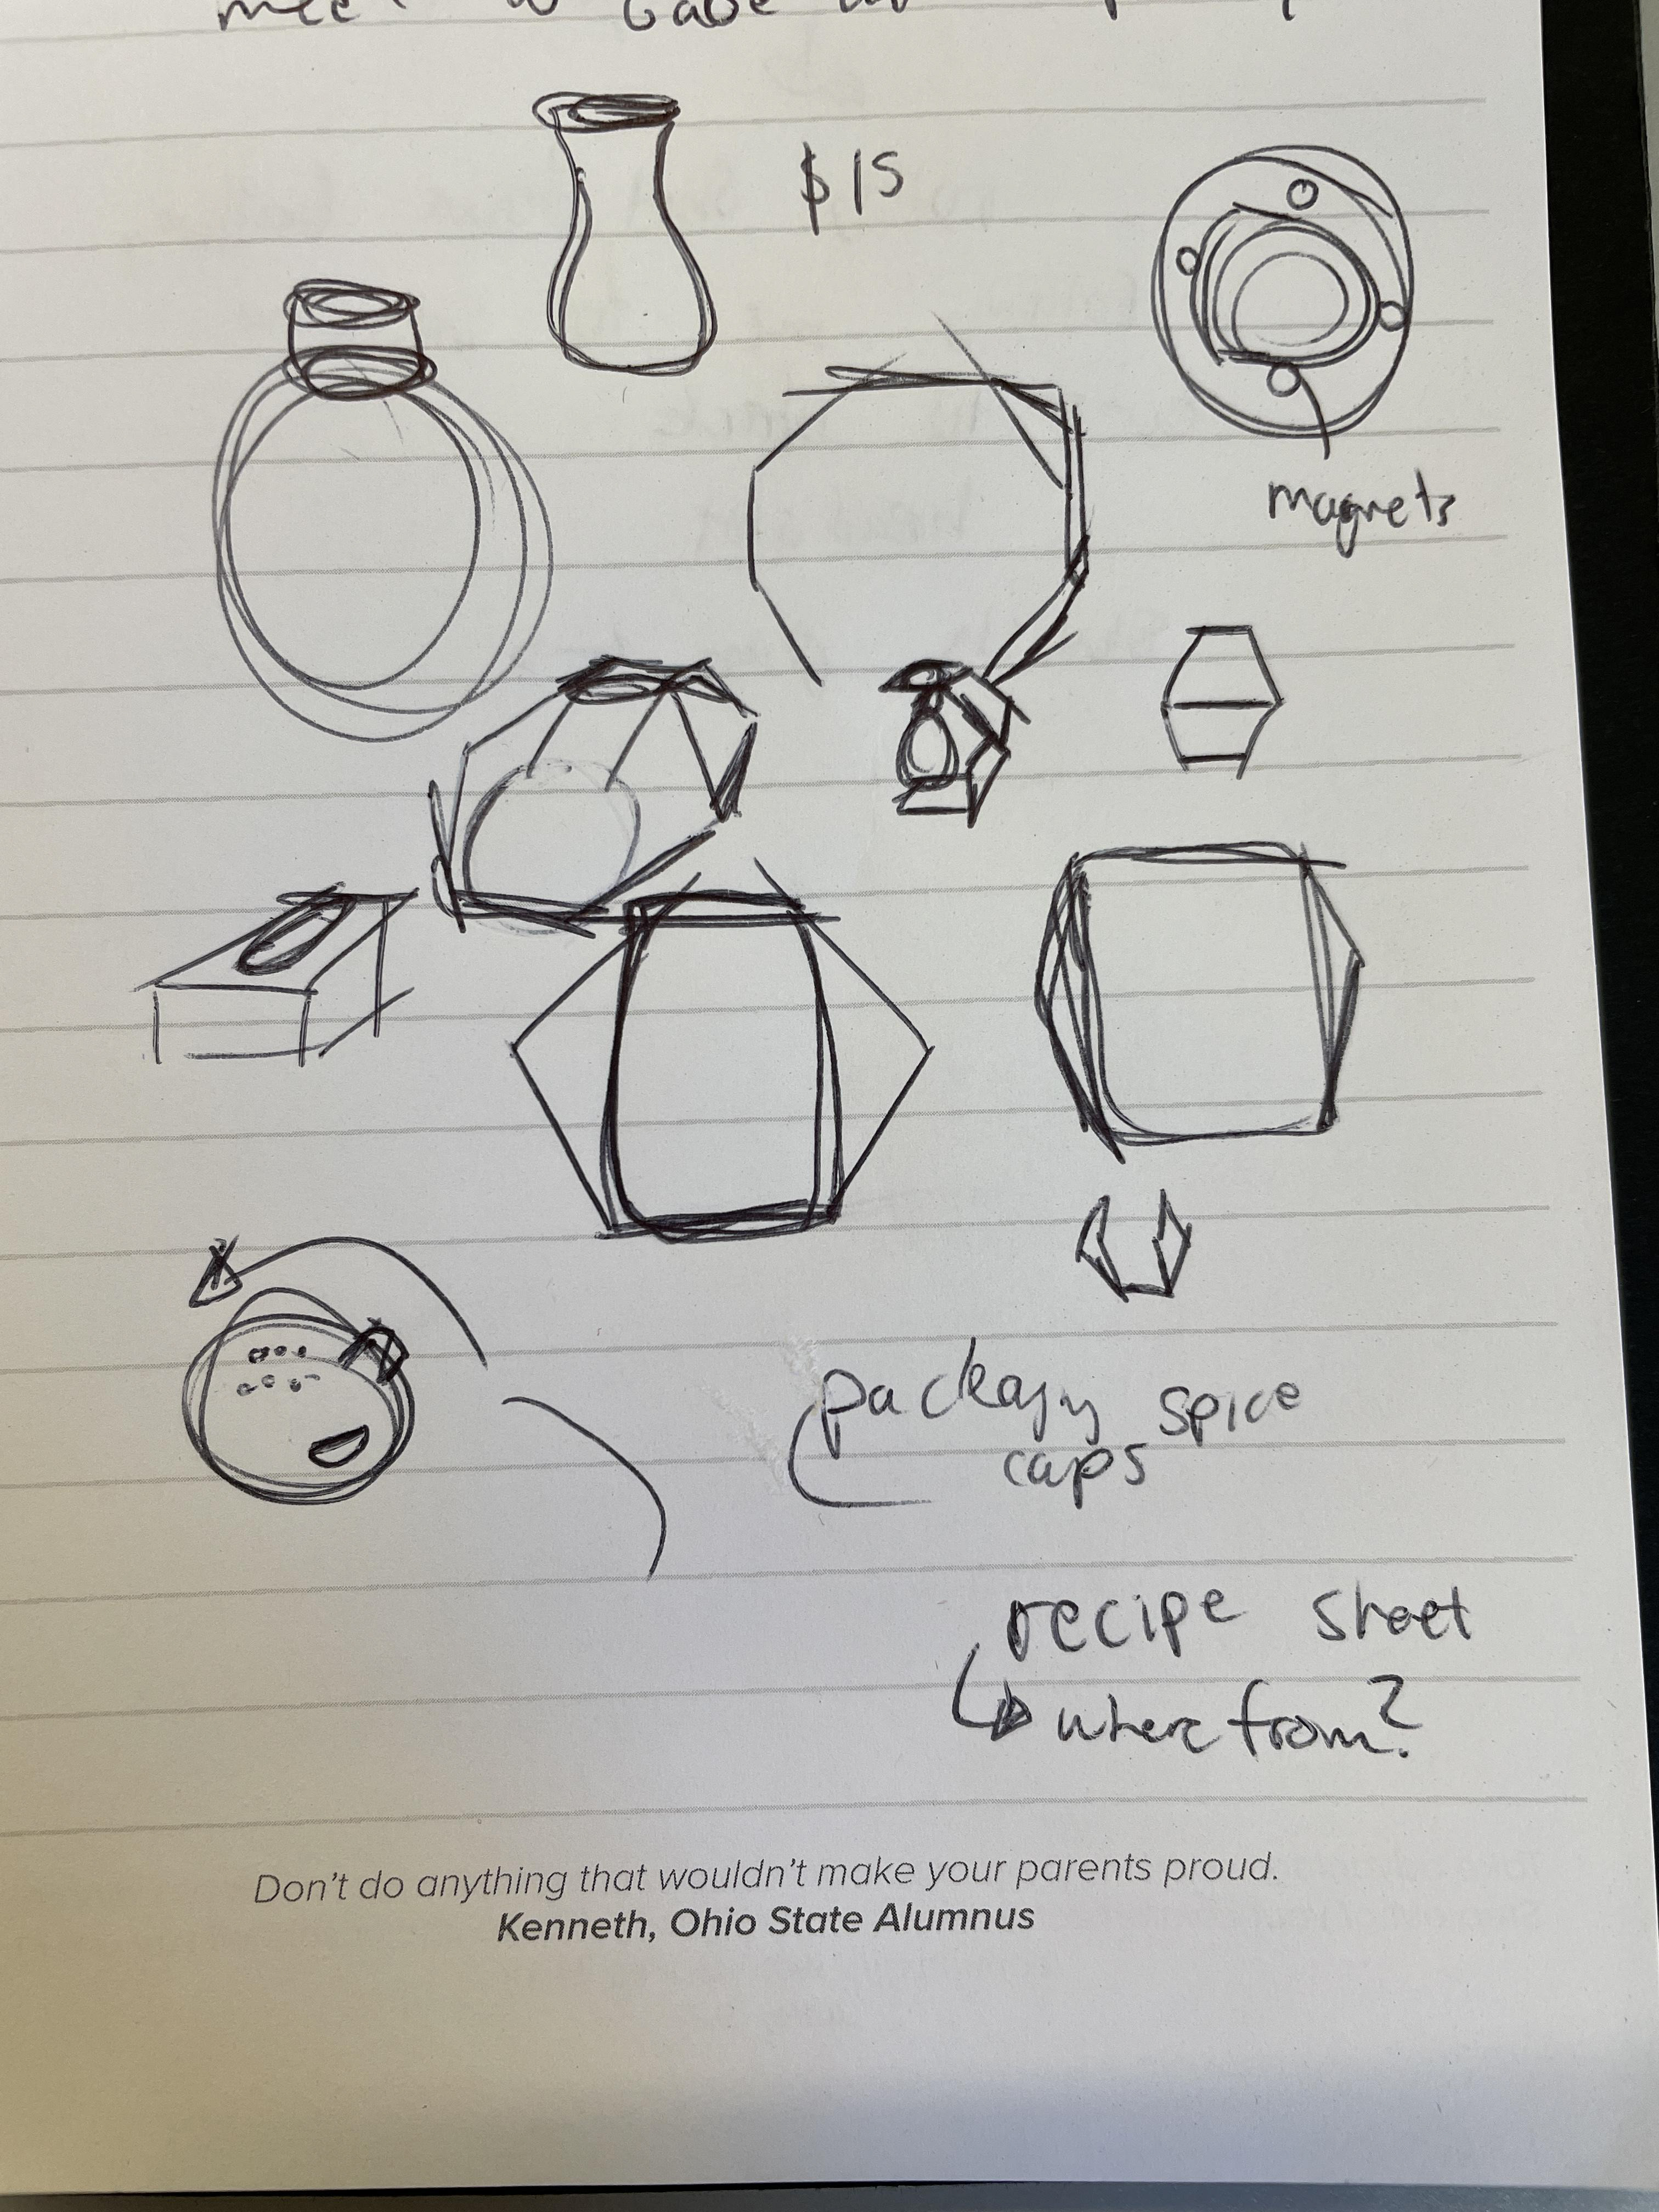 $15
magnets
spice
caps
recipe sheet
where from?
Don't do anything that wouldn't make your parents proud.
Kenneth, Ohio State Alumnus